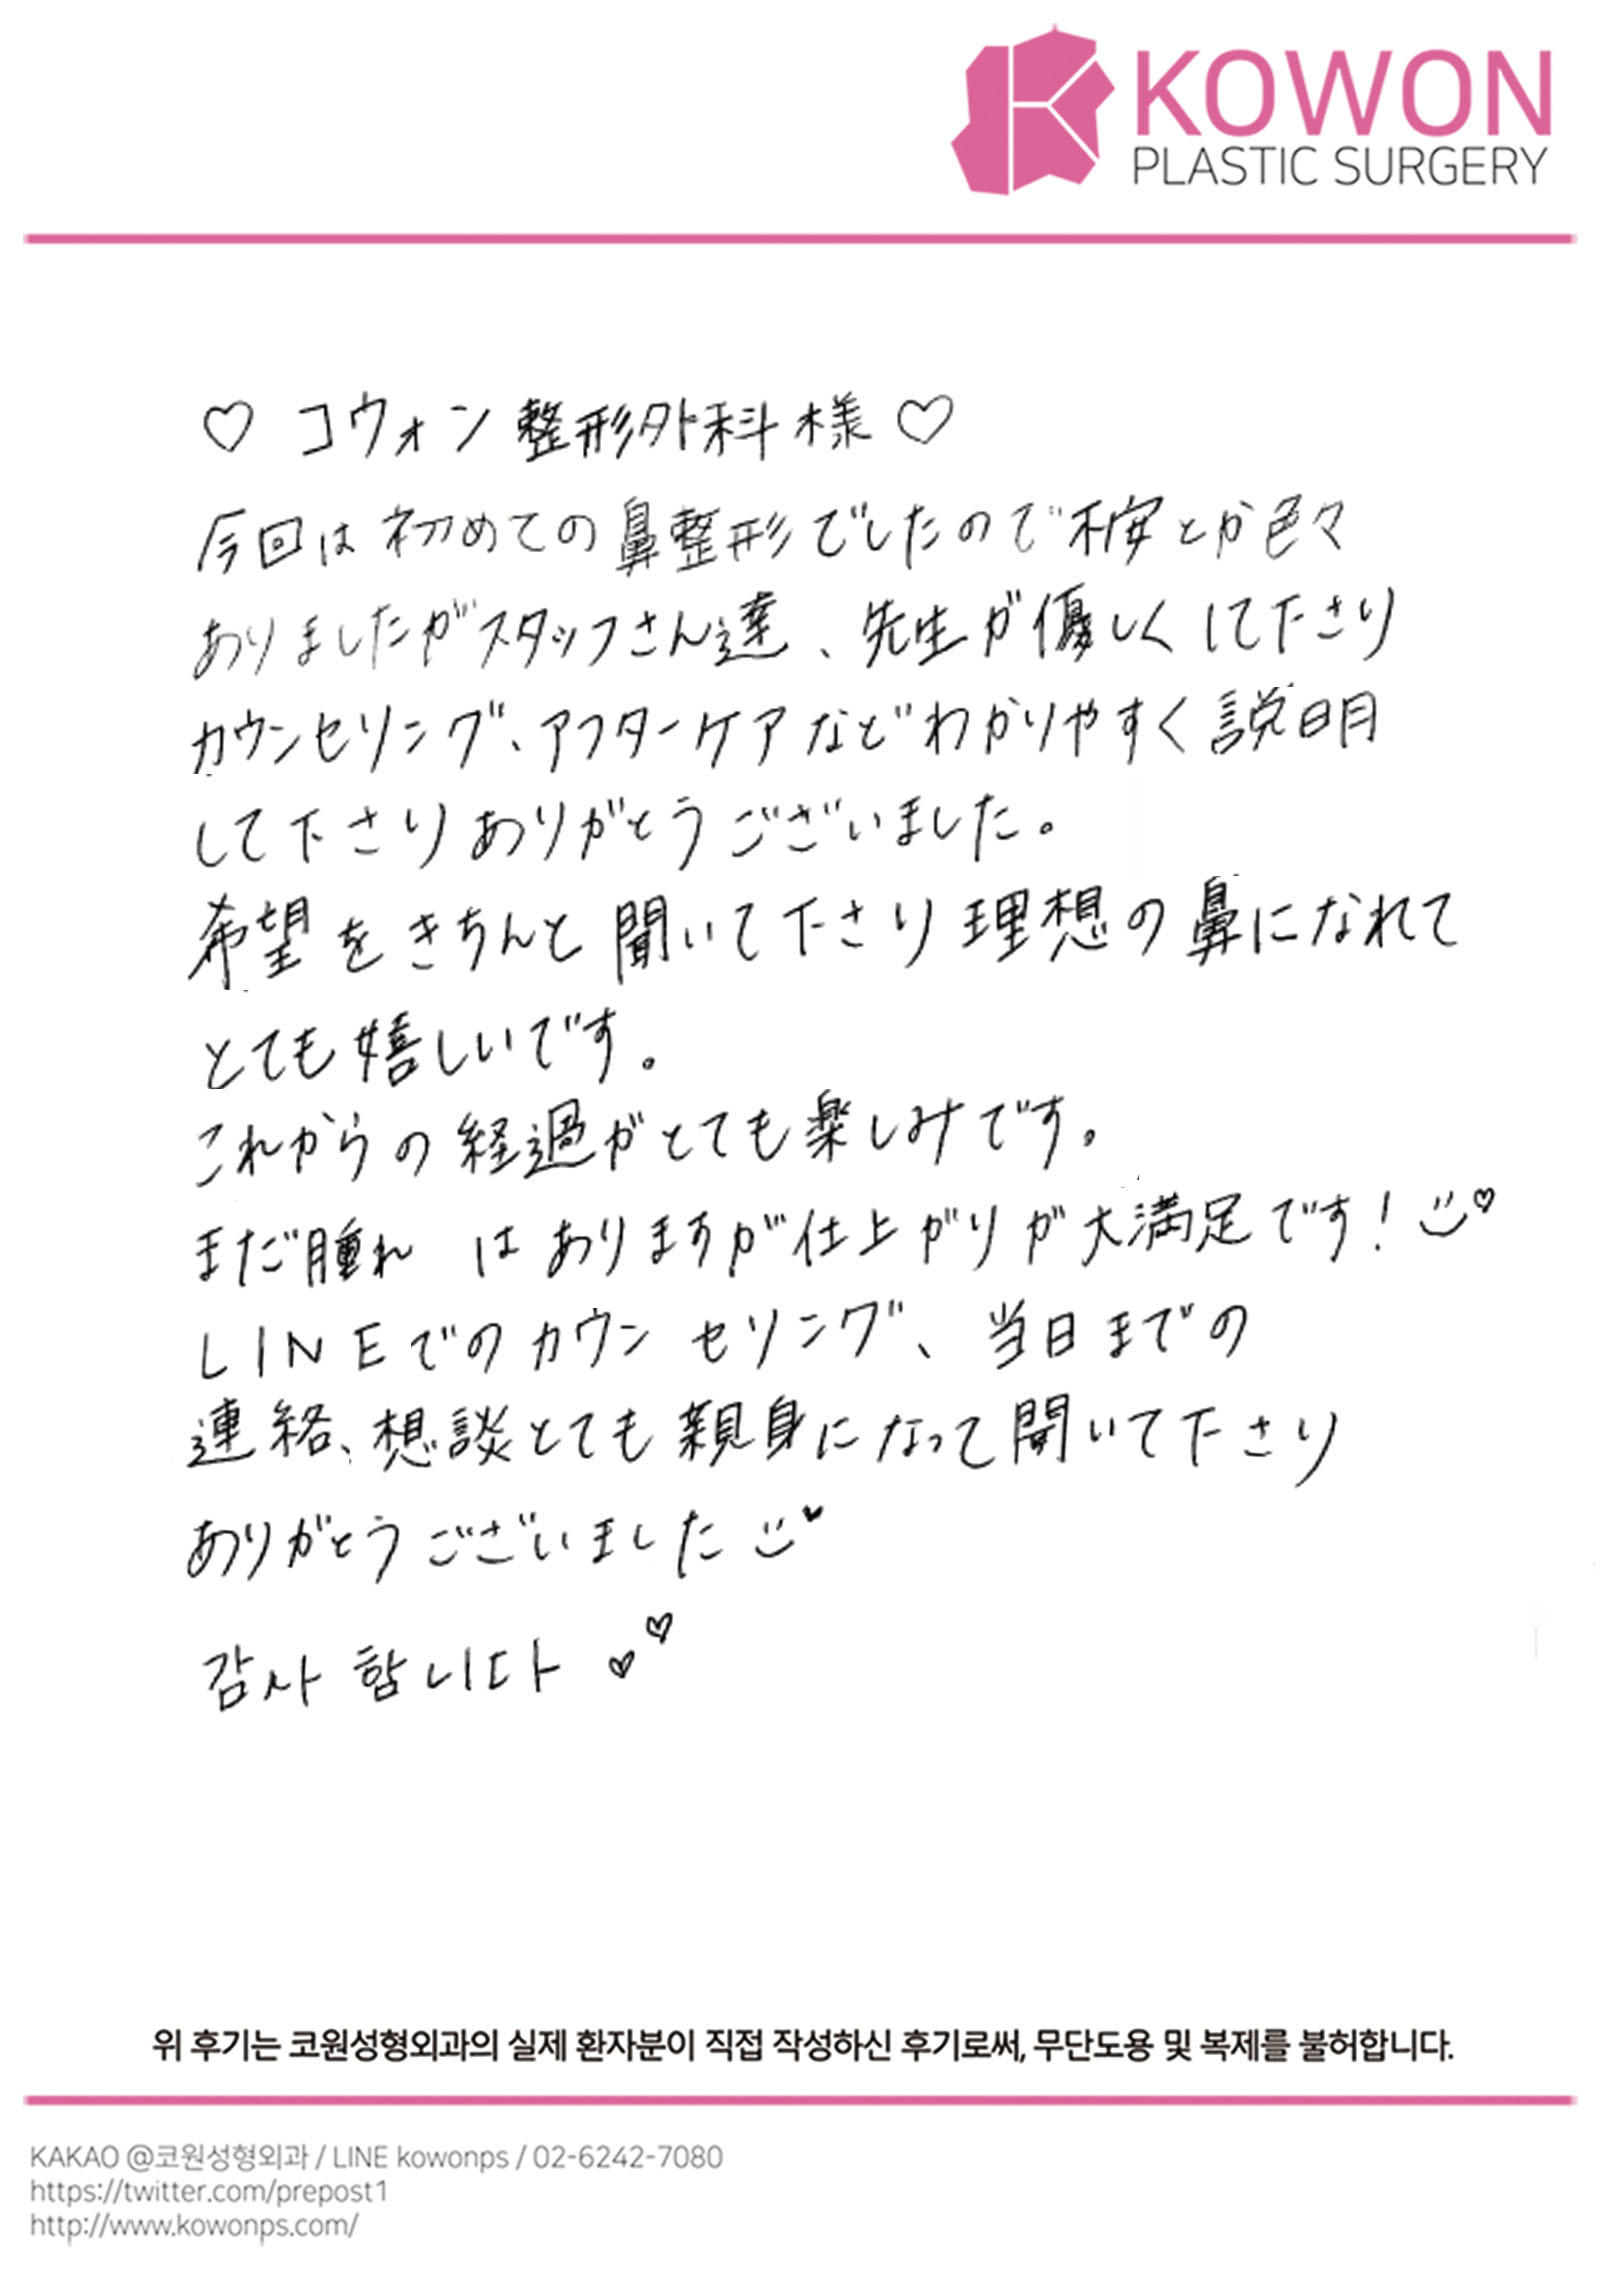 KOWON
PLASTIC SURGERY
♡ コウォン整形外科様 ♡
今回は初めての鼻整形でしたので不安とか色々
ありましたがスタッフさん達、先生が優しくして下さり
カウンセリング、アフターケアなどわかりやすく説明
して下さりありがとうございました。
希望をきちんと聞いて下さり理想の鼻になれて
とても嬉しいです。
これからの経過がとても楽しみです。
まだ腫れ はありますが仕上がりが大満足です!
LINEでのカウンセリング、当日までの
連絡、想談とても親身になって聞いて下さり
ありがとうございました
감사합니다 ♡♡
위 후기는 코원성형외과의 실제 환자분이 직접 작성하신 후기로써, 무단도용 및 복제를 불허합니다.
KAKAO @코원성형외과 / LINE kowonps / 02-6242-7080
https://twitter.com/prepost1
http://www.kowonps.com/